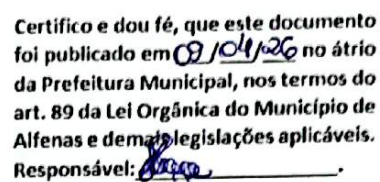 Certifico e dou fé, que este documento
foi publicado em 09/04/26 no átrio
da Prefeitura Municipal, nos termos do
art. 89 da Lei Orgânica do Município de
Alfenas e demais legislações aplicáveis.
Responsável: .